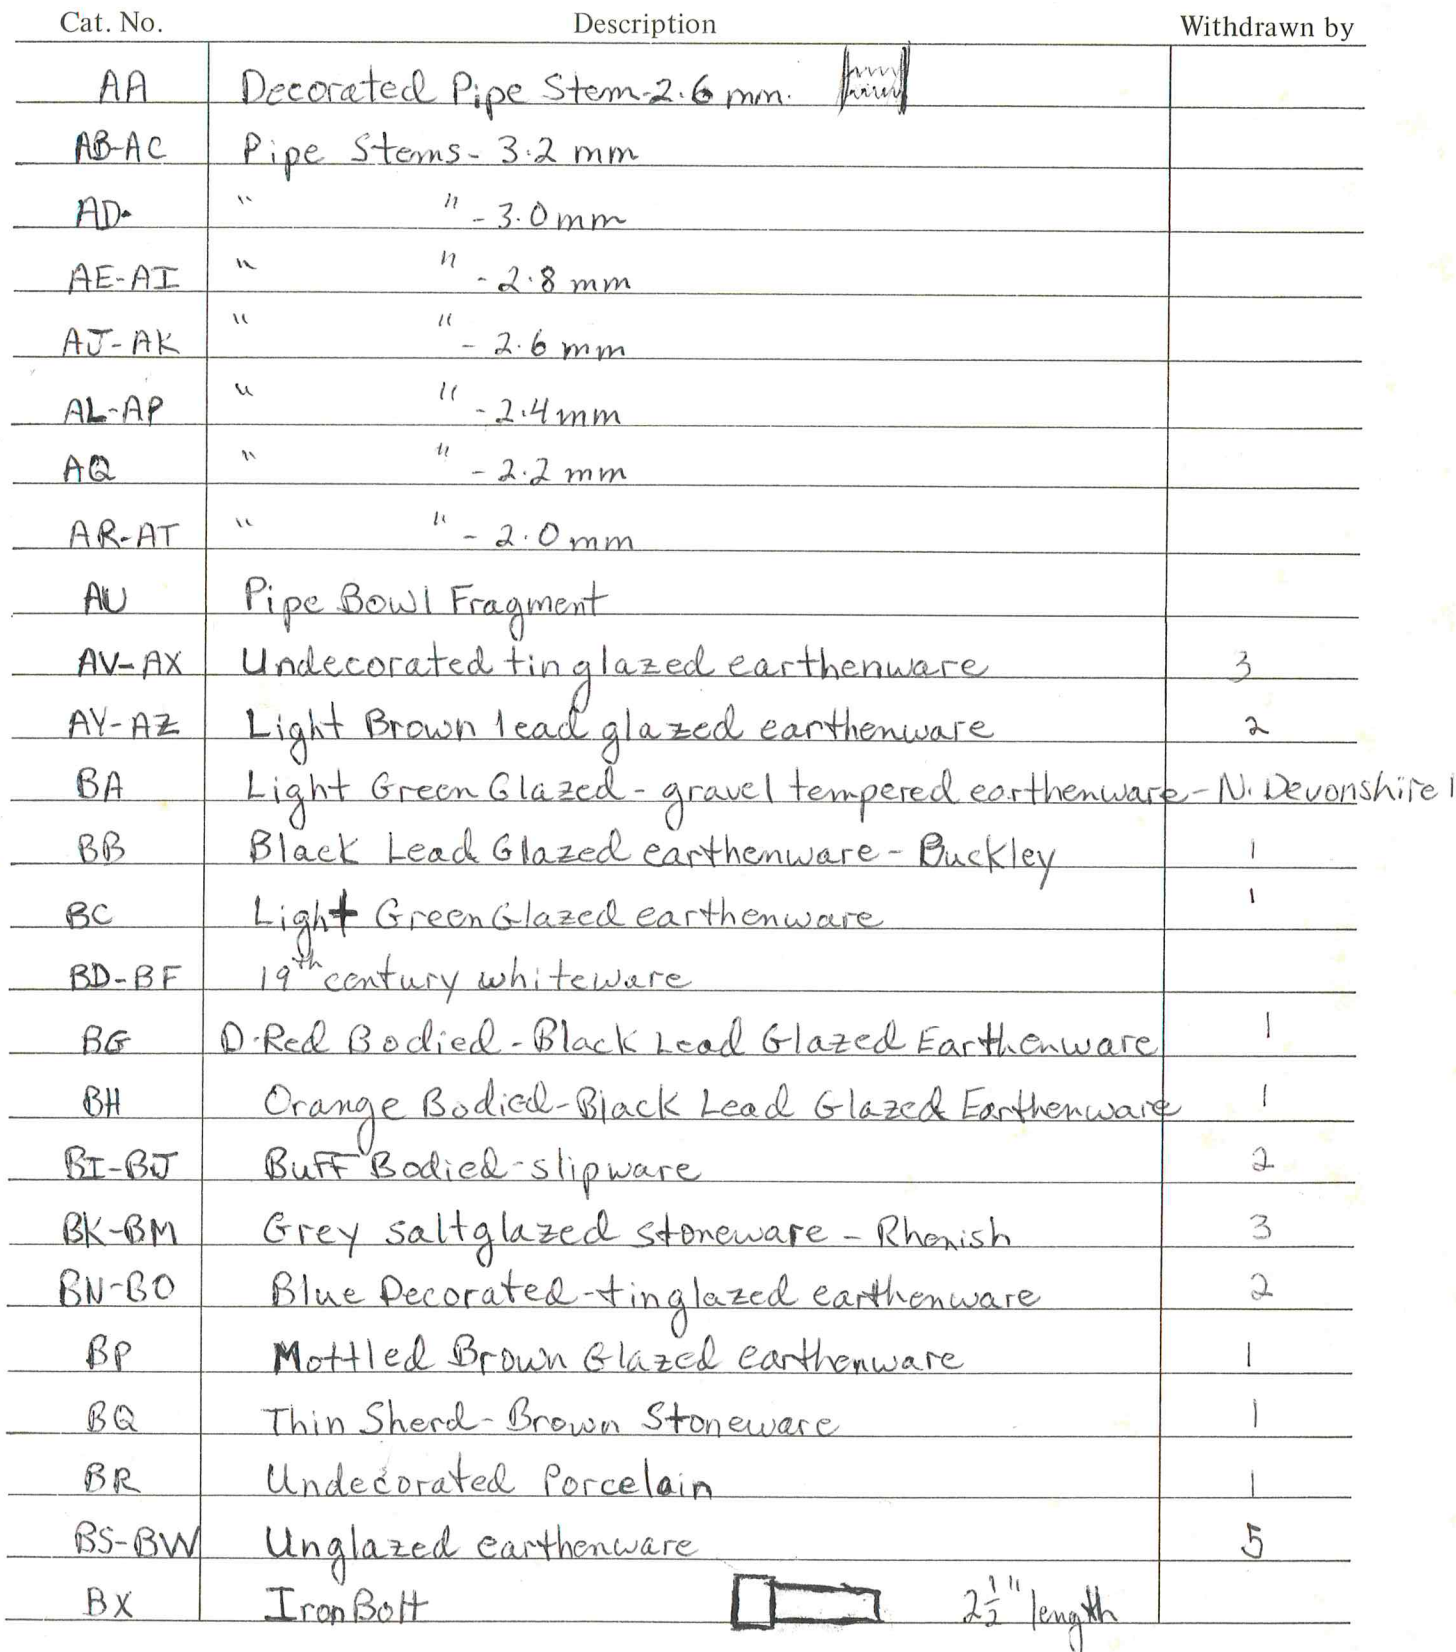 Cat. No. Description Withdrawn by
AA Decorated Pipe Stem-2.6 mm.
AB-AC Pipe Stems- 3.2 mm
AD. " " - 3.0mm
AE-AI " " - 2.8 mm
AJ-AK " " - 2.6 mm
AL-AP " " - 2.4mm
AQ " " - 2.2 mm
AR-AT " " - 2.0mm
AU Pipe Bowl Fragment
AV-AX Undecorated tin glazed earthenware 3
AY-AZ Light Brown lead glazed earthenware 2
BA Light Green Glazed - gravel tempered earthenware - N. Devonshire 1
BB Black Lead Glazed earthenware - Buckley 1
BC Light Green Glazed earthenware 1
BD-BF 19th century whiteware
BG D.Red Bodied - Black Lead Glazed Earthenware 1
BH Orange Bodied-Black Lead Glazed Earthenware 1
BI-BJ Buff Bodied-slipware 2
BK-BM Grey saltglazed stoneware - Rhenish 3
BN-BO Blue Decorated-tinglazed earthenware 2
BP Mottled Brown Glazed earthenware 1
BQ Thin Sherd-Brown Stoneware 1
BR Undecorated Porcelain 1
BS-BW Unglazed earthenware 5
BX Iron Bolt 2 1/2" length